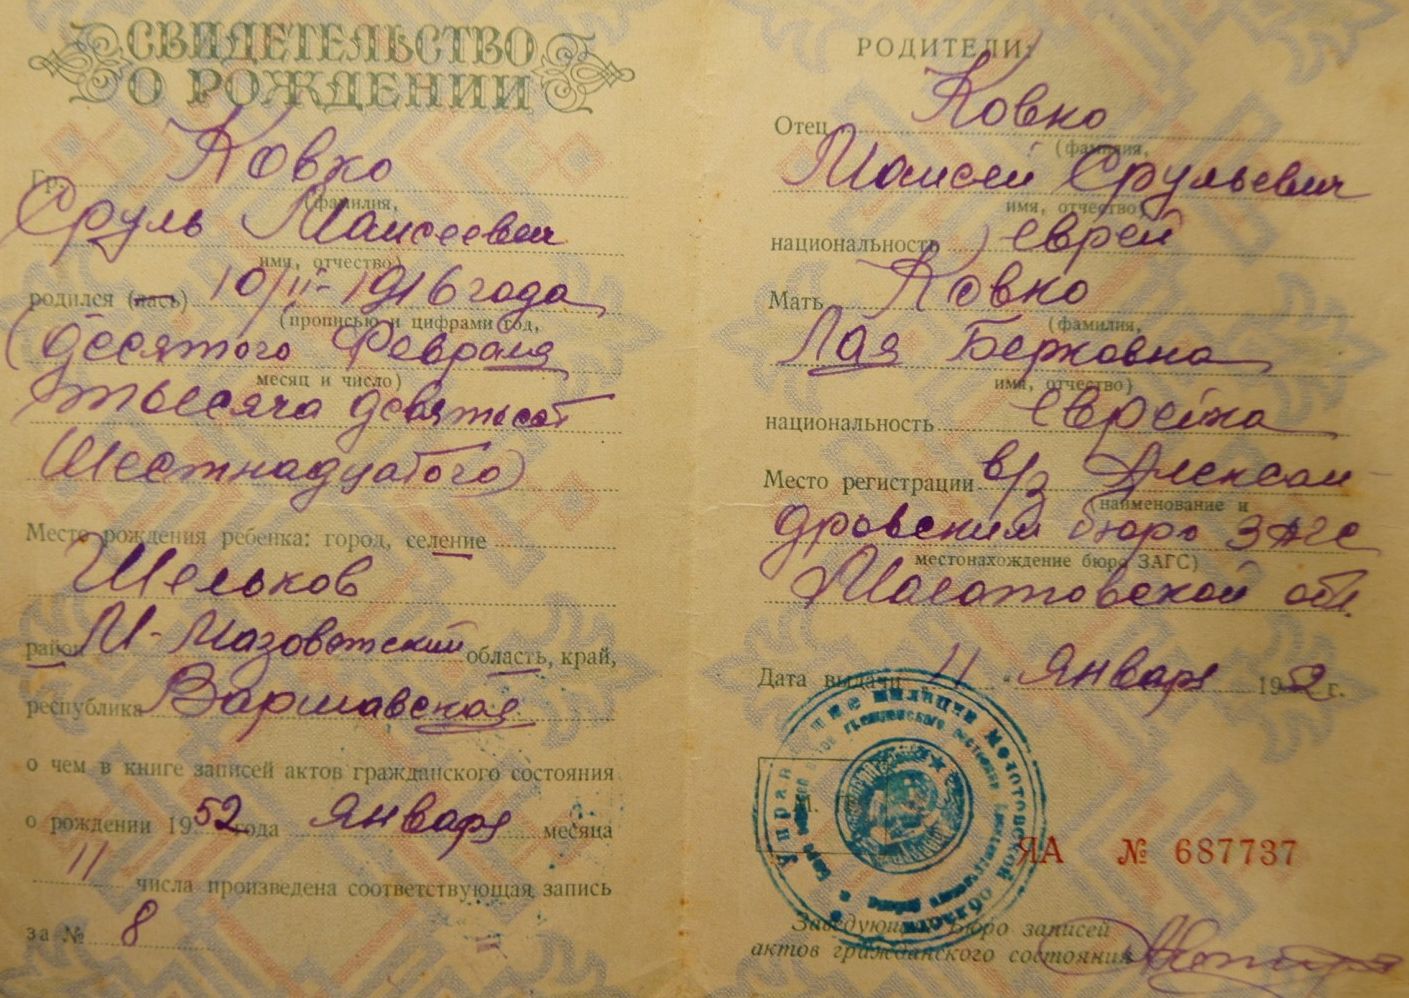 СВИДЕТЕЛЬСТВО
О РОЖДЕНИИ
Гр. Ковко
(фамилия,
Сруль Моисеевич
имя, отчество)
родился (лась) 10/II-1916 года
(прописью и цифрами год,
(десятого Февраля
месяц и число)
тысяча девятьсот
Шестнадцатого)
Место рождения ребенка: город, селение
Шельков
район М-Мазоветский область, край,
республика Варшавская
о чем в книге записей актов гражданского состояния
о рождении 1952 года Января месяца
11 числа произведена соответствующая запись
за № 8
РОДИТЕЛИ:
Отец Ковко
(фамилия,
Моисей Срульевич
имя, отчество)
национальность еврей
Мать Ковко
(фамилия,
Лая Берковна
имя, отчество)
национальность еврейка
Место регистрации в/з Алексан-
наименование и
дровским бюро ЗАГС
местонахождение бюро ЗАГС)
Молотовской обл.
Дата выдачи 11 Января 1952 г.
Управление милиции Молотовской области
М.
ЯА № 687737
Заведующий Бюро записей
актов гражданского состояния